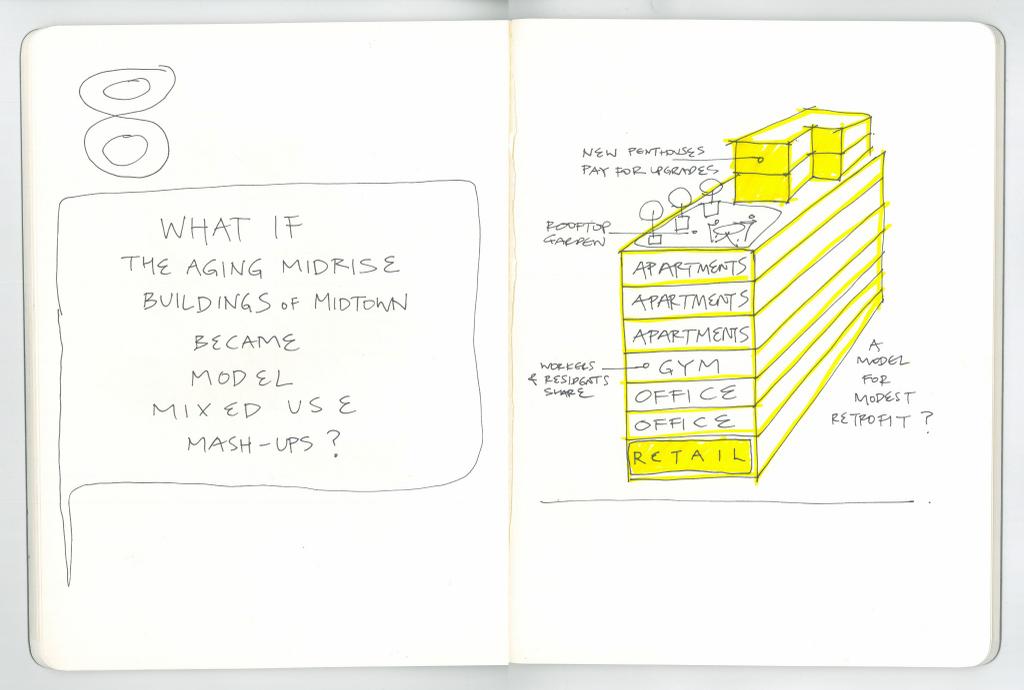 8
WHAT IF
THE AGING MIDRISE
BUILDINGS OF MIDTOWN
BECAME
MODEL
MIXED USE
MASH-UPS?
NEW PENTHOUSES
PAY FOR UPGRADES
ROOFTOP
GARDEN
APARTMENTS
APARTMENTS
APARTMENTS
GYM
WORKERS
& RESIDENTS
SHARE
OFFICE
OFFICE
RETAIL
A
MODEL
FOR
MODEST
RETROFIT?